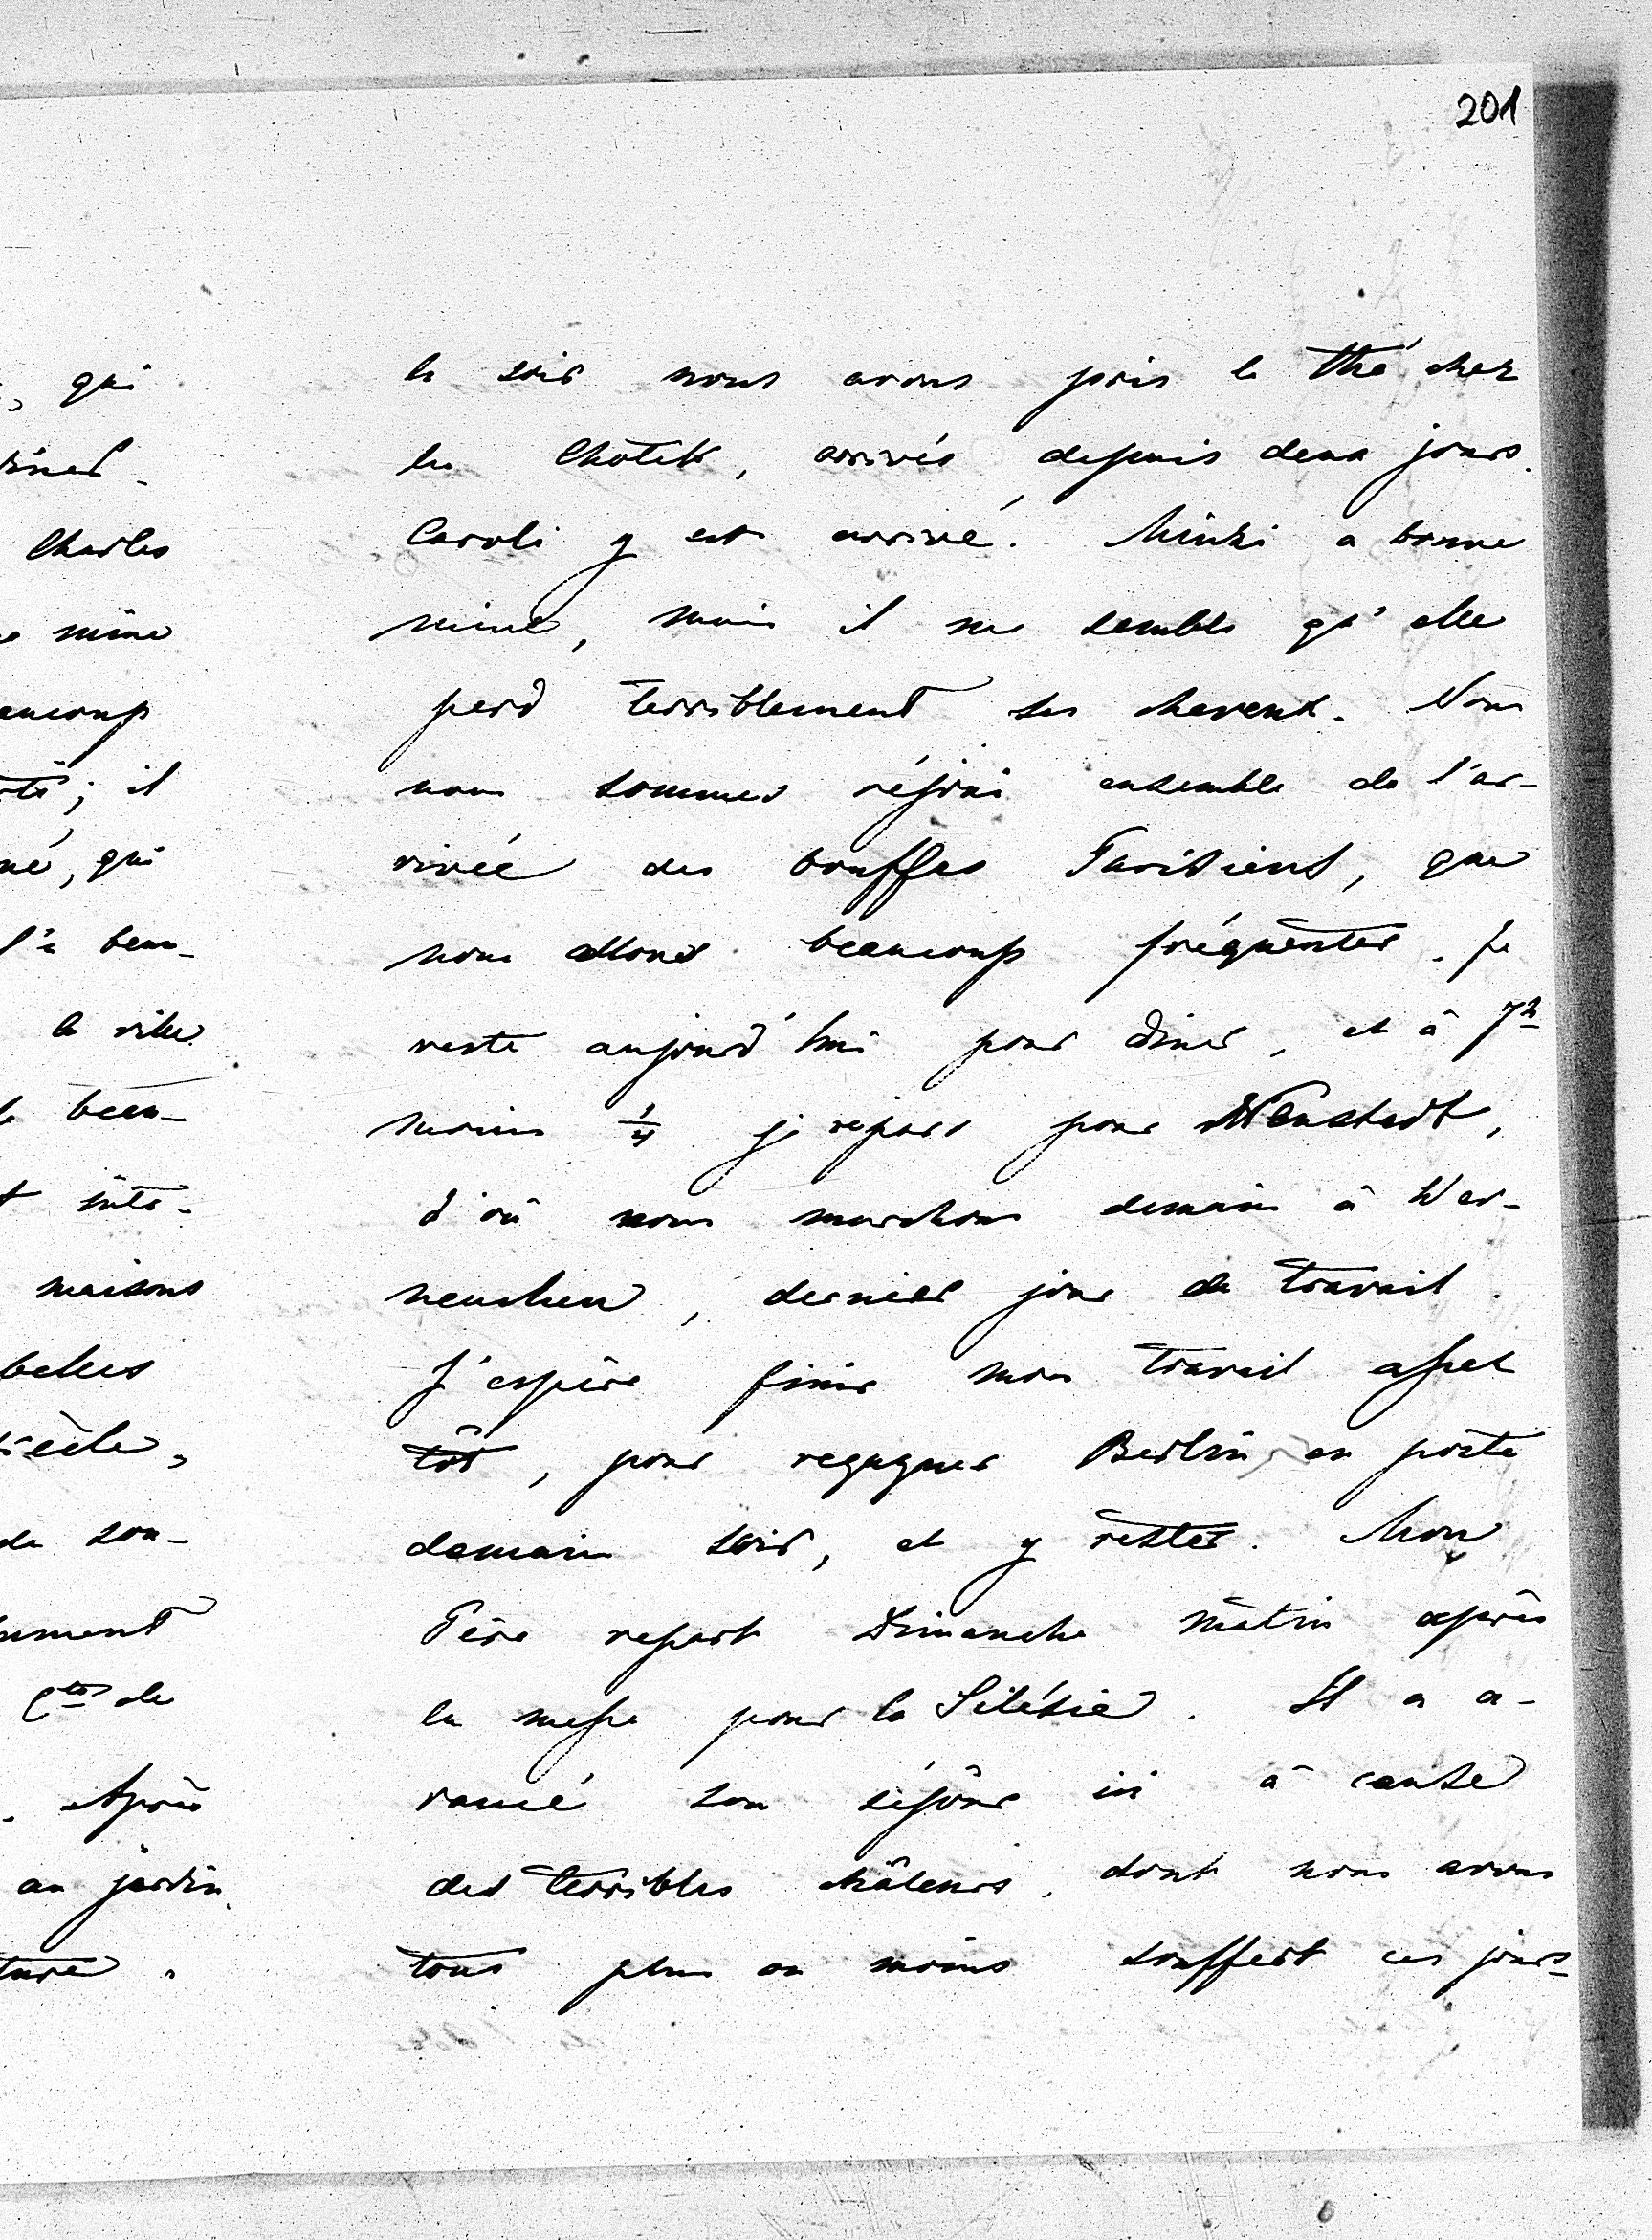 201
le soir nous avons pris le thé chez
les Chotek, arrivés depuis deux jours.
Caroli y est arrivé. Minzi a bonne
mine, mais il me semble qu'elle
perd terriblement ses cheveux. Nous
nous sommes réjoui ensemble de l'ar-
rivée des bouffes Parisiens, que
nous allons beaucoup fréquenter. Je
reste aujourd'hui pour diner, et à 7h
moins 1/4 je repars pour Neustadt,
d'où nous marchons demain à Wer-
neuchen, dernier jour de travail.
J'espère finir mon travail assez
tôt, pour regagner Berlin en poste
demain soir, et y rester. Mon
Père repart Dimanche matin après
la messe pour la Silésie. Il a a-
vancé son séjour ici à cause
des terribles châleurs, dont nous avons
tous plus ou moins souffert ces jours-
qui
Charles
mine
il
qui
l'a beau-
la ville
beau-
maisons
belles
de son-
Ctes de
. Après
au jardin.